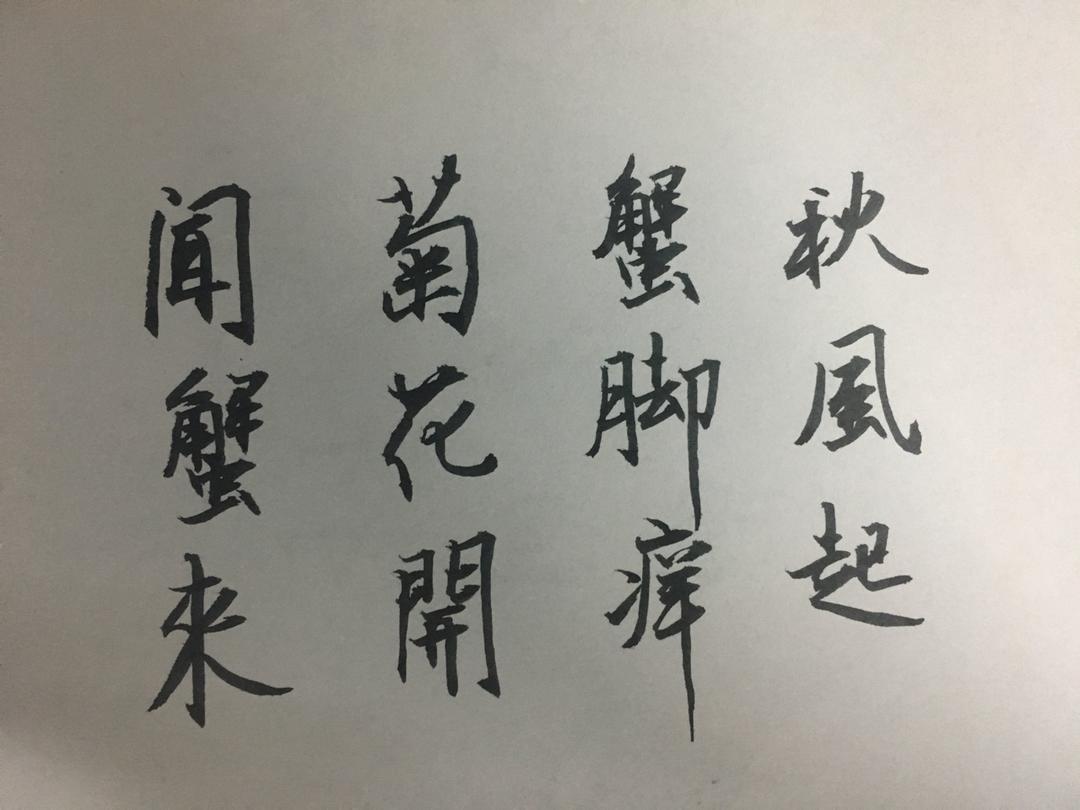 秋風起
蟹脚痒
菊花開
闻蟹來